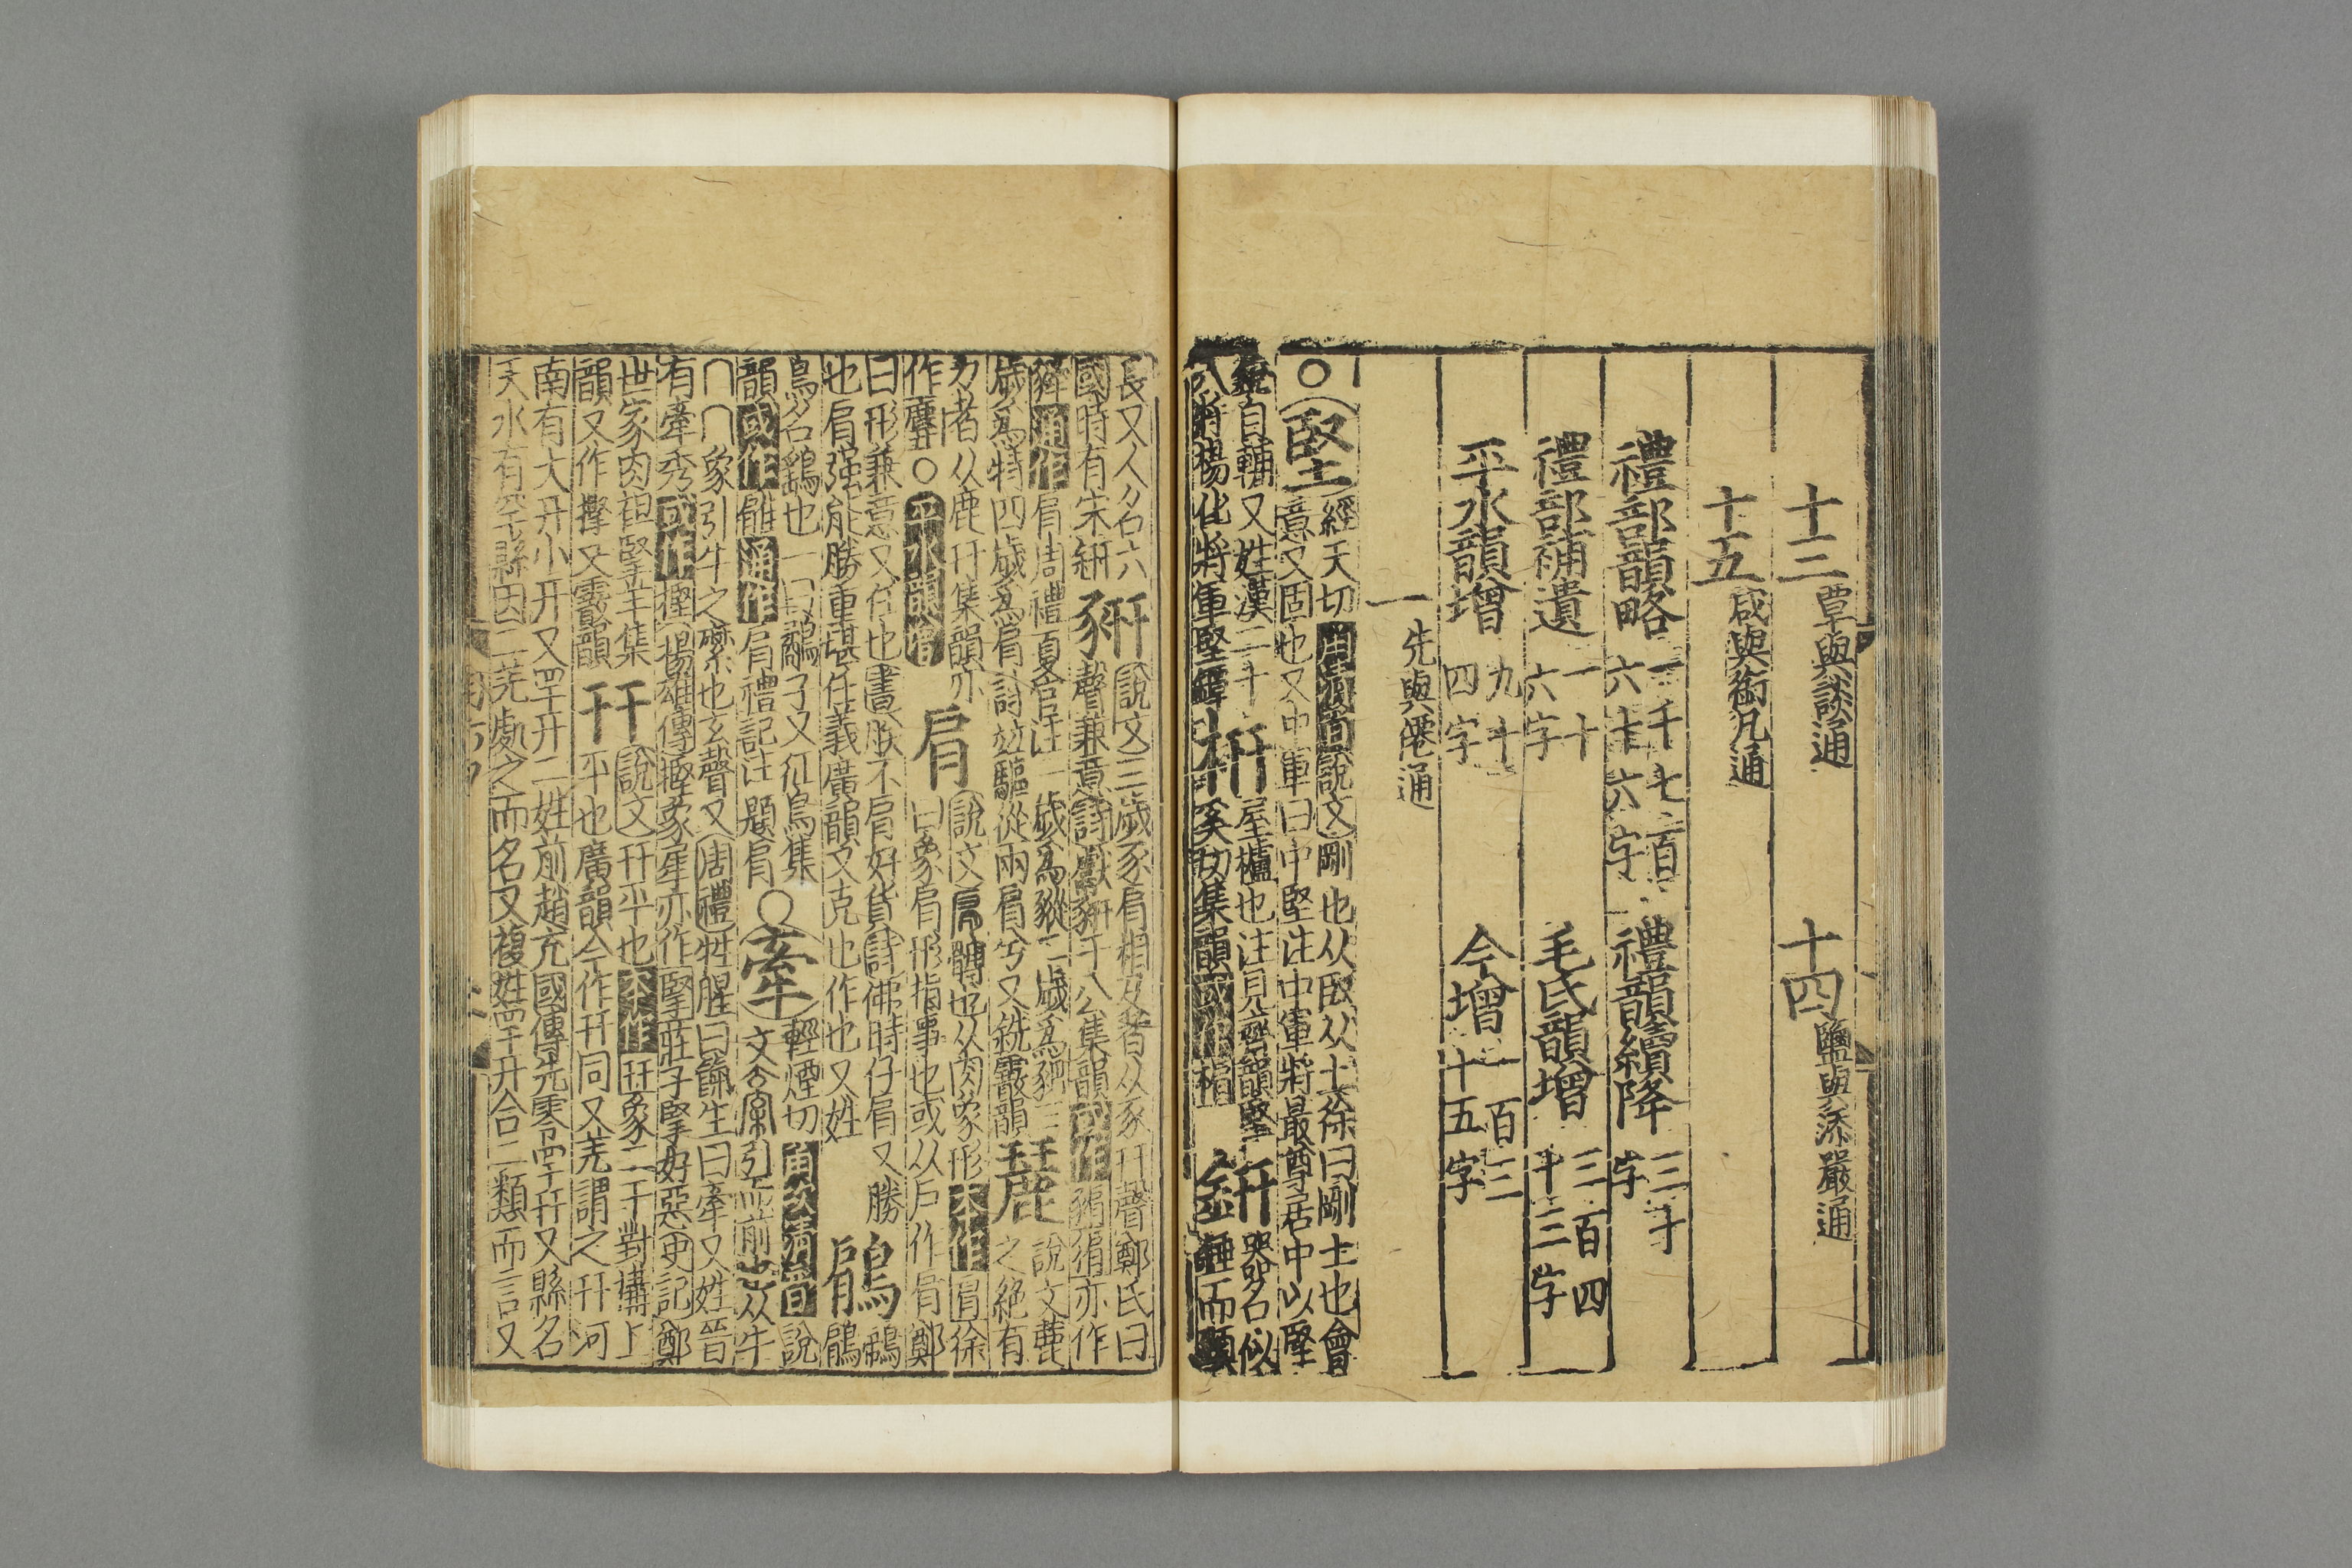 十三覃與談通 十四鹽與添嚴通
十五咸與銜凡通
禮部韻略一千七百六十六字 禮韻續降三十字
禮部補遺一十六字 毛氏韻增三百四十三字
平水韻增九十四字 今增一百二十五字
一先與僊通
○堅經天切角次清音說文剛也从臤从土徐曰剛土也會
意又固也又中軍曰中堅注中軍將最尊居中以堅
銳自輔又姓漢二十
八將楊化將軍堅鐔
枅屋櫨也注見齊韻堅
奚切集韻或作楣
鈃器名似
鍾而頸
長又人名六
國時有宋鈃
豣說文三歲豕肩相及者从豕幵聲鄭氏曰
聲兼意詩獻豣于公集韻或作豜猏亦作
豣通作肩周禮夏官注一歲爲豵二歲爲豝三
歲爲特四歲爲肩詩並驅從兩肩兮又銑霰韻
麉說文麉
之絕有
力者从鹿幵集韻亦
作麠○平水韻增
肩說文肩髆也从肉象形本作肩徐
曰象肩形指事也或从戶作肩鄭
曰形兼意又任也書朕不肩好貨詩佛時仔肩又勝
也肩强能勝重堪任義廣韻又克也作也又姓
鵳鵳
鳥名鷂也一曰鸇子又征鳥集
韻或作雃通作肩禮記注題肩
○牽輕煙切角次清音說
文合宲引而前也从牛
冂冂象引牛之縻也玄聲又周禮牲腥曰餼生曰牽又姓晉
有牽秀或作摼揚雄傳摼象犀亦作掔莊子掔好惡史記鄭
世家肉袒掔羊集
韻又作摼又霰韻
幵說文幵平也本作幵象二干對構上
平也廣韻今作幵同又羌謂之幵河
南有大幵小幵又罕幵二姓前趙充國傳先零罕幵又縣名
天水有罕幵縣因二羌處之而名又複姓罕幵合二類而言又